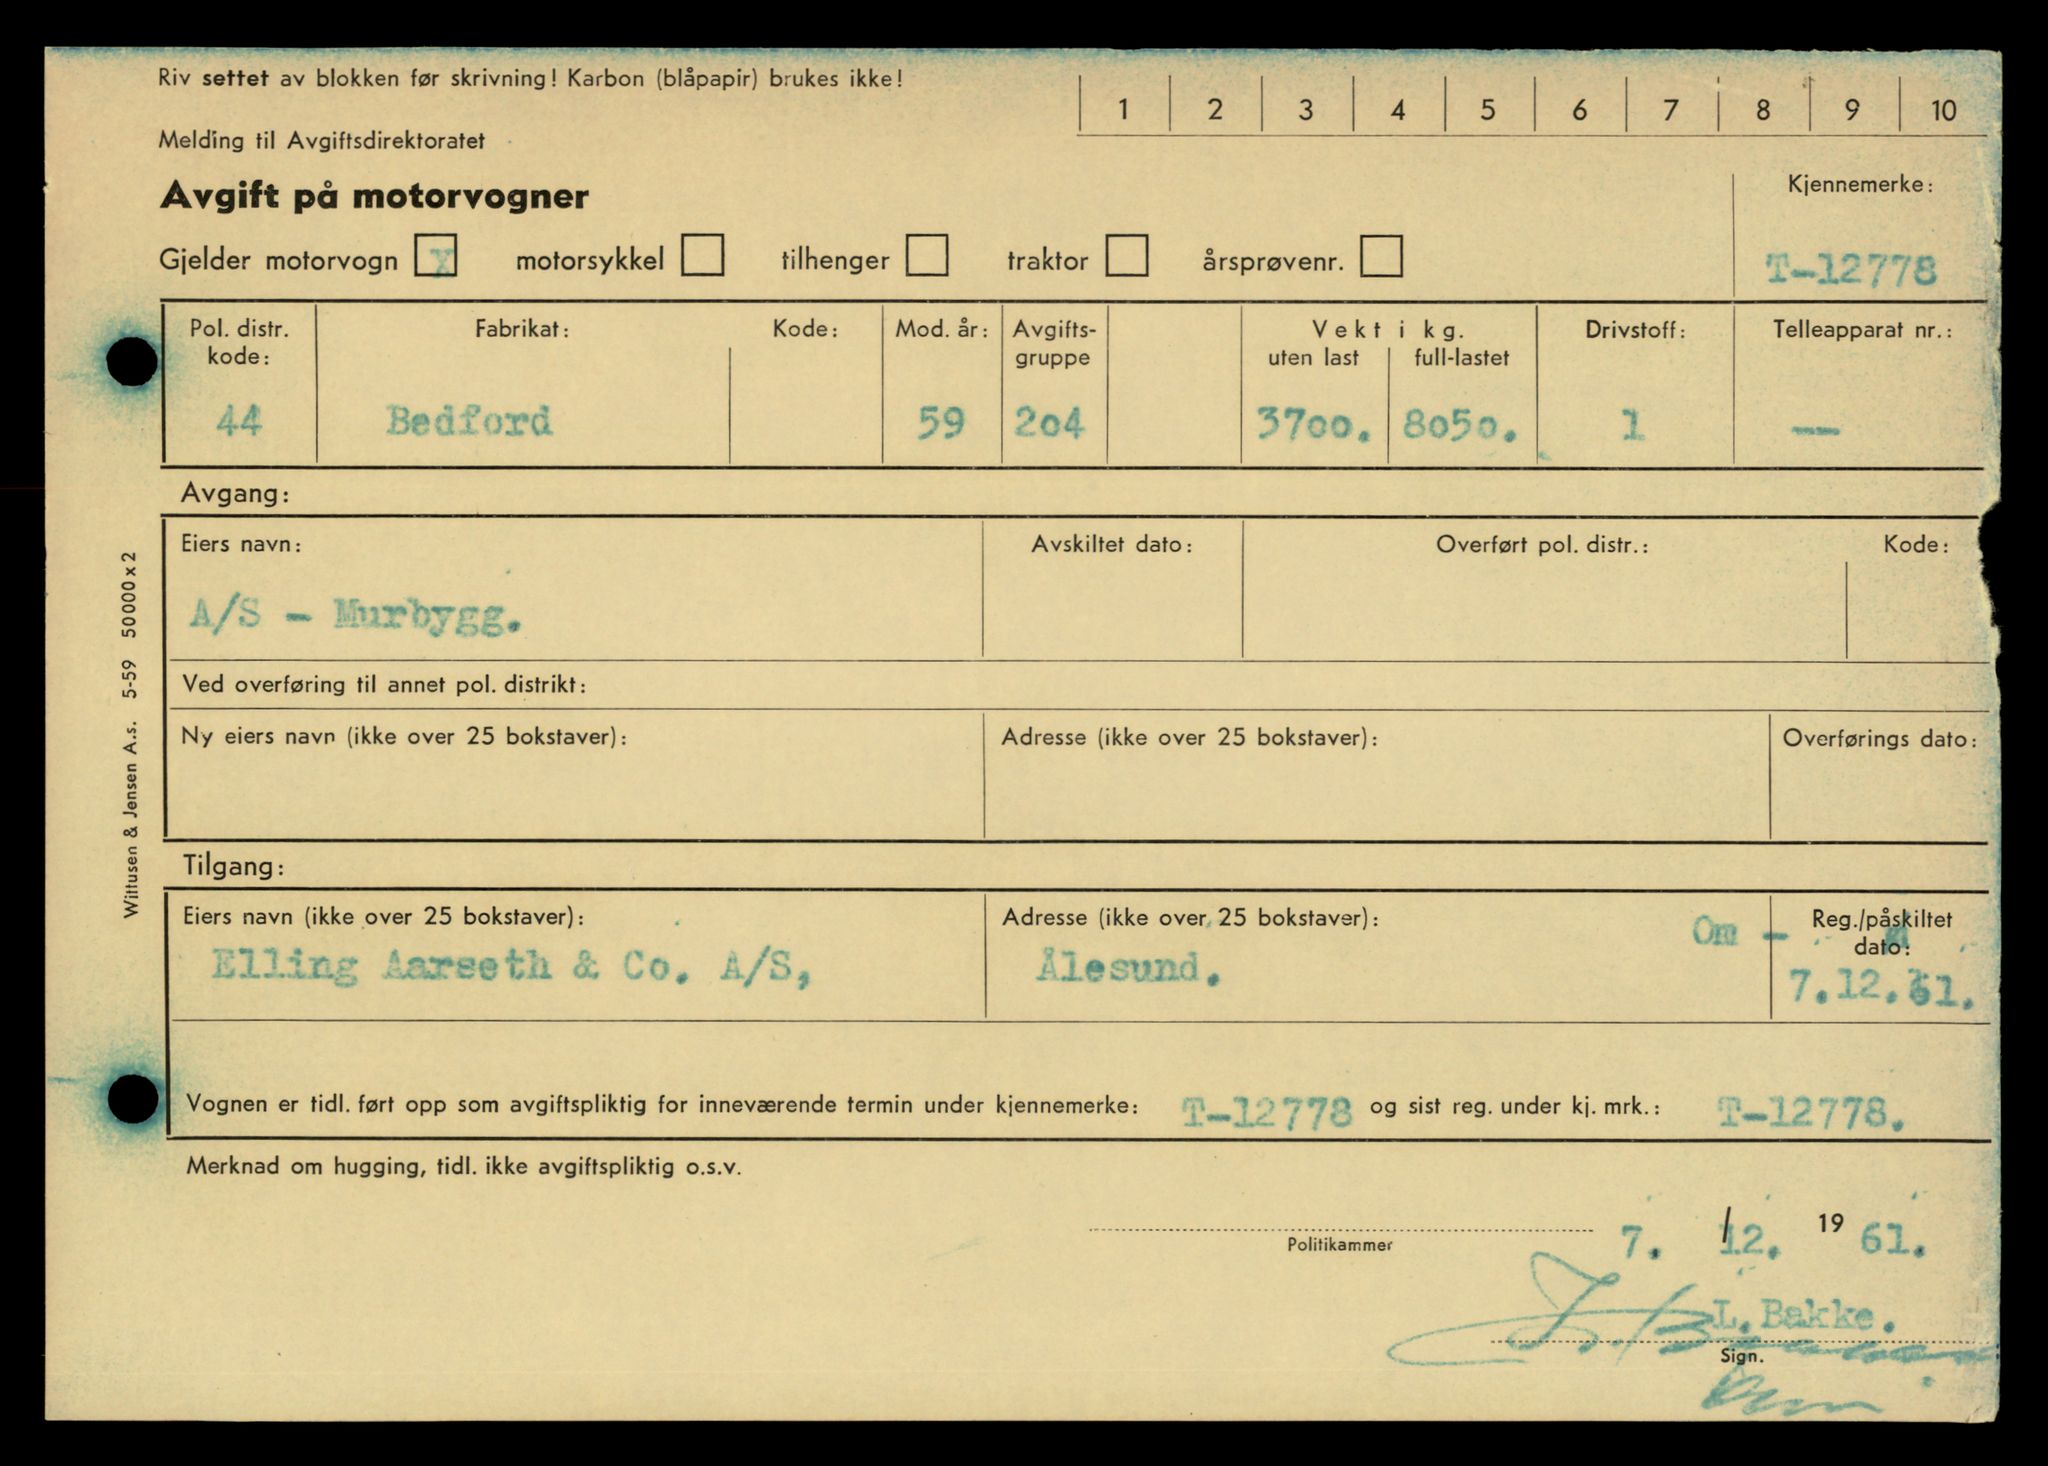 Riv settet av blokken før skrivning! Karbon (blåpapir) brukes ikke!
1 2 3 4 5 6 7 8 9 10
Melding til Avgiftsdirektoratet
Avgift på motorvogner
Kjennemerke:
Gjelder motorvogn X motorsykkel tilhenger traktor årsprøvenr.
T-12778
Pol. distr. kode: Fabrikat: Kode: Mod. år: Avgifts-gruppe Vekt i kg. uten last full-lastet Drivstoff: Telleapparat nr.:
44 Bedford 59 204 3700. 8050. 1 —
Avgang:
Eiers navn: Avskiltet dato: Overført pol. distr.: Kode:
A/S - Murbygg.
Ved overføring til annet pol. distrikt:
Ny eiers navn (ikke over 25 bokstaver): Adresse (ikke over 25 bokstaver): Overførings dato:
Tilgang:
Eiers navn (ikke over 25 bokstaver): Adresse (ikke over 25 bokstaver): Om - Reg./påskiltet dato:
Elling Aarseth & Co. A/S, Ålesund. 7.12.61.
Vognen er tidl. ført opp som avgiftspliktig for inneværende termin under kjennemerke: T-12778 og sist reg. under kj. mrk.: T-12778.
Merknad om hugging, tidl. ikke avgiftspliktig o.s.v.
7. / 12. 19 61.
Politikammer
L. Bakke.
Sign.
Wittusen & Jensen A.s. 5-59 50000 x 2